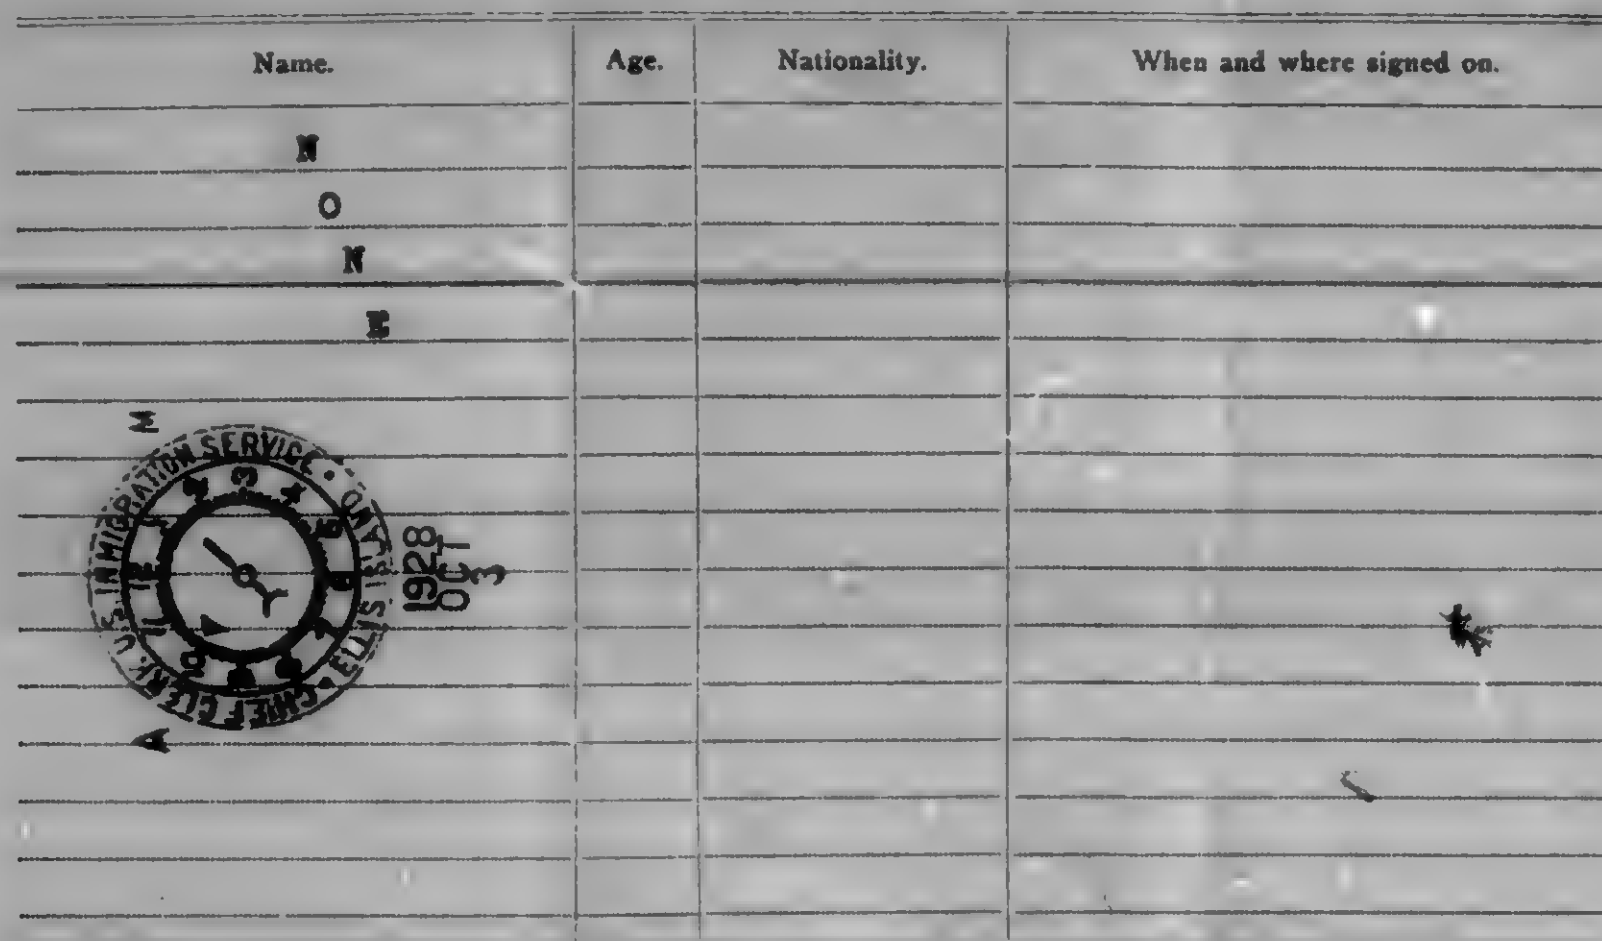 Name. Age. Nationality. When and where signed on.
N
O
N
E
M
CHIEF CLERK, U.S. IMMIGRATION SERVICE • ELLIS ISLAND •
1 2 3 4 5 6 7 8 9 10 11 12
1928
OCT
3
A